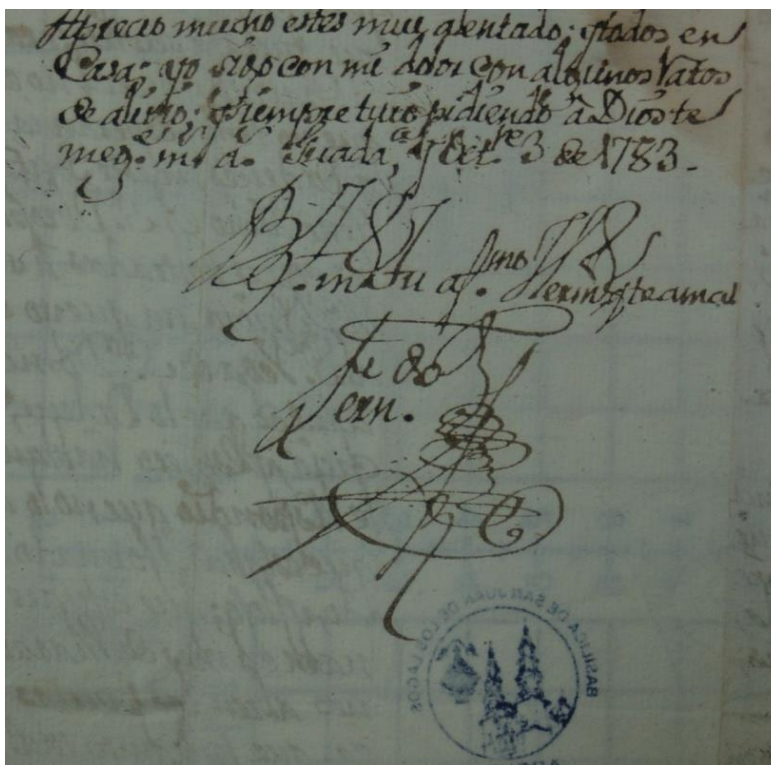 Aprecio mucho estes muy alentado; y todos en
Casa; yo sigo con mi dolor con algunos Ratos
de alivio; y siempre tuio pidiendo â Dios te
me g.e m.s a.s Guada.a y Oct.re 3 de 1783.
tu af.mo Herm.o q te ama
Fern.
BASILICA DE SAN JUAN DE LOS LAGOS